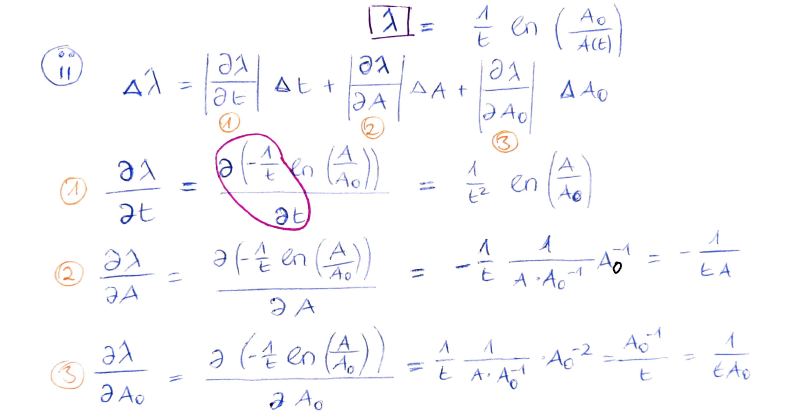 λ = 1/t ln (A₀/A(t))
ü) Δλ = |∂λ/∂t| Δt + |∂λ/∂A| ΔA + |∂λ/∂A₀| ΔA₀
① ② ③
① ∂λ/∂t = ∂(-1/t ln(A/A₀))/∂t = 1/t² ln(A/A₀)
② ∂λ/∂A = ∂(-1/t ln(A/A₀))/∂A = -1/t 1/(A·A₀⁻¹) A₀⁻¹ = -1/(tA)
③ ∂λ/∂A₀ = ∂(-1/t ln(A/A₀))/∂A₀ = 1/t 1/(A·A₀⁻¹) · A₀⁻² = A₀⁻¹/t = 1/(tA₀)